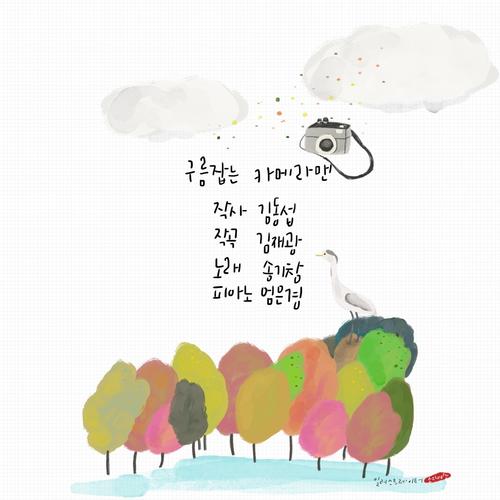 구름잡는 카메라맨
작사 김동섭
작곡 김재광
노래 송기창
피아노 엄은경
일러스트레이터